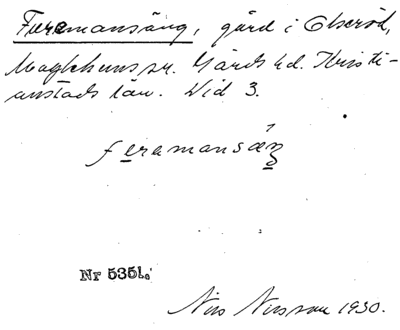 Furemansäng, gård i Olseröd,
Maglehems sn. Gärds hd. Kristi-
anstads län. Vid 3.
Nr 5351.
Nils Nilsson 1930.